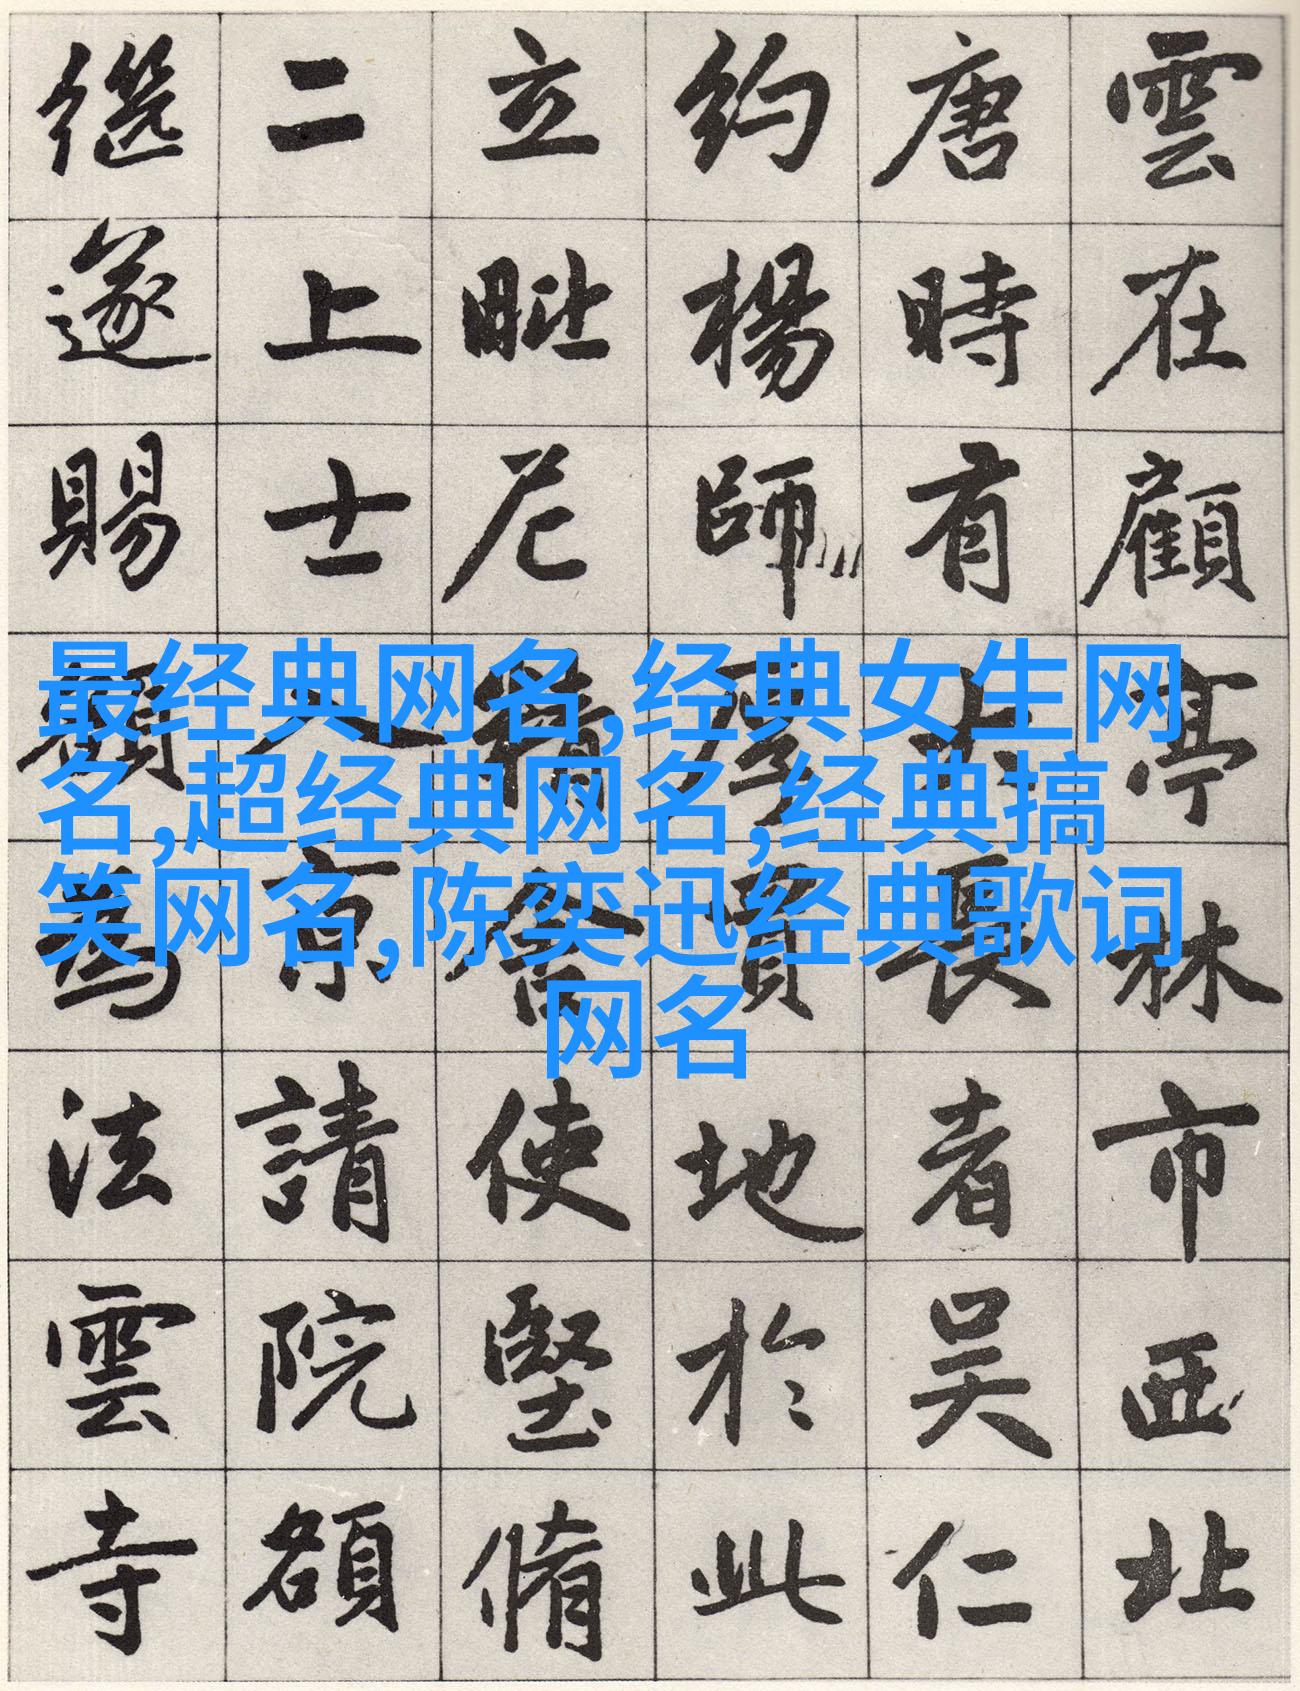 雲在顧亭林市西北
唐時有長者吴仁
約楊師地於此
立毗尼精舍使堅脩
二上士入京請院額
繼遂賜額為法雲寺
最经典网名,经典女生网
名,超经典网名,经典搞
笑网名,陈奕迅经典歌词
网名